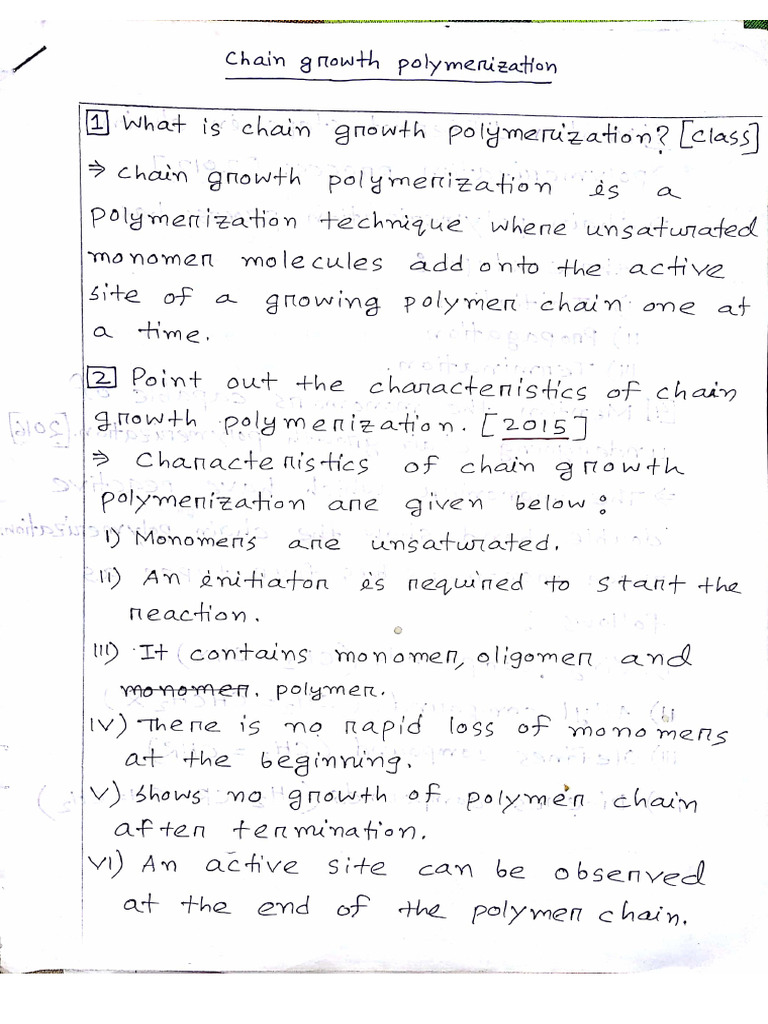 Chain growth polymerization
1 What is chain growth polymerization? [class]
⇒ Chain growth polymerization is a
polymerization technique where unsaturated
monomer molecules add onto the active
site of a growing polymer chain one at
a time.
2 Point out the characteristics of chain
growth polymerization. [2015]
⇒ Characteristics of chain growth
polymerization are given below:
I) Monomers are unsaturated.
II) An initiator is required to start the
reaction.
III) It contains monomer, oligomer and
monomer. polymer.
IV) There is no rapid loss of monomers
at the beginning.
V) Shows no growth of polymer chain
after termination.
VI) An active site can be observed
at the end of the polymer chain.